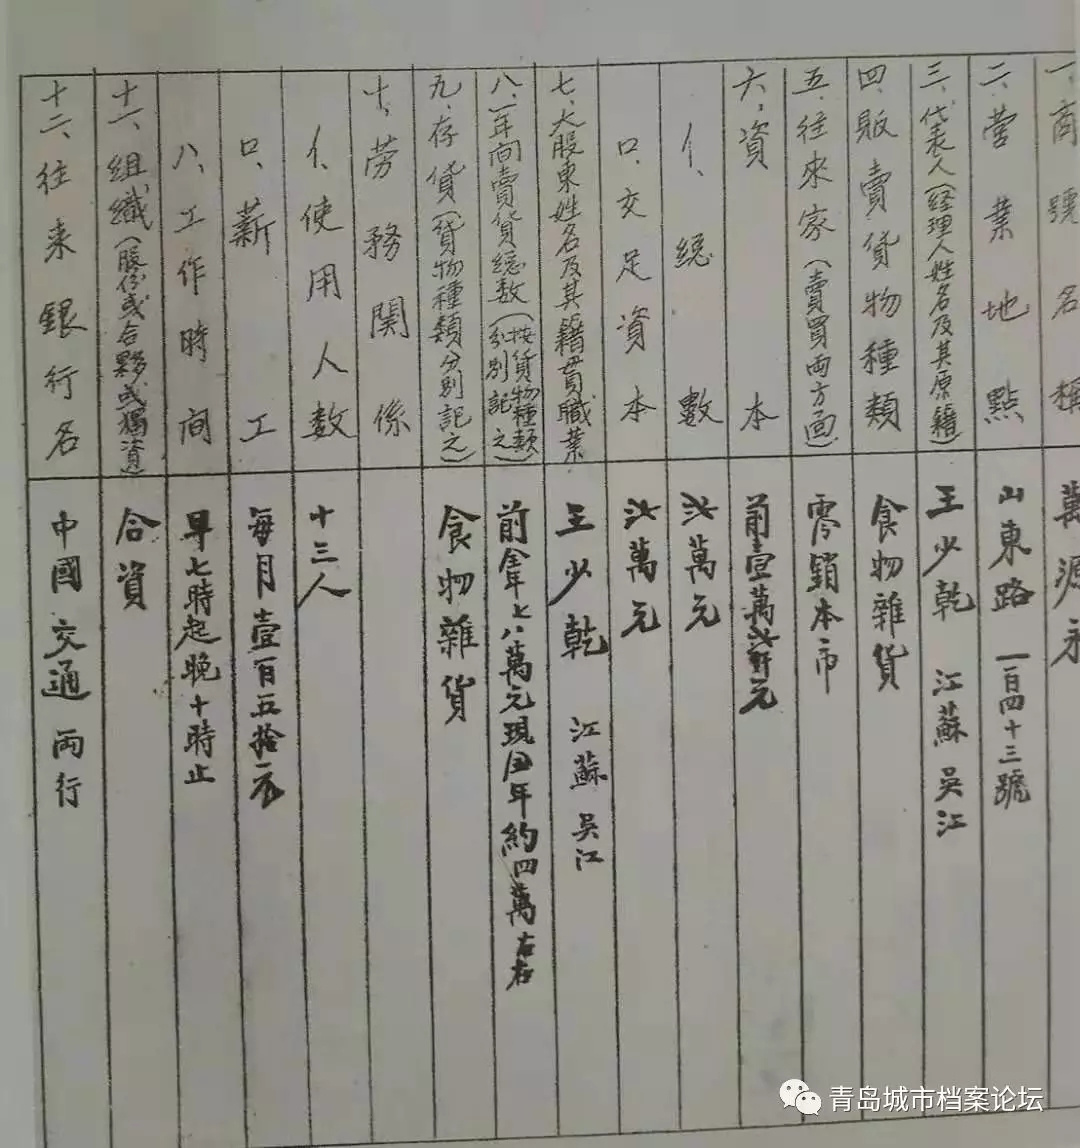 一、商號名稱
萬源永
二、營業地點
山東路 一百四十三號
三、代表人(経理人姓名及其原籍)
王少乾 江蘇 吳江
四、販賣貨物種類
食物雜貨
五、往來家(賣買両方面)
零銷本市
六、資本
前壹萬 元
イ、総數
萬元
ロ、交足資本
萬元
七、大股東姓名及其籍貫職業
王少乾 江蘇 吳江
八、一年间賣貨總数(按貨物種類分別記之)
前 年七八萬元現 年約四萬左右
九、存貨(貨物種類分別記之)
食物雜貨
十、劳務関係
イ、使用人数
十三人
ロ、薪工
每月壹百五拾元
八、工作時间
早七時起晚十時止
十一、組織(股份或合夥或獨資)
合資
十二、往来銀行名
中國交通両行
青岛城市档案论坛